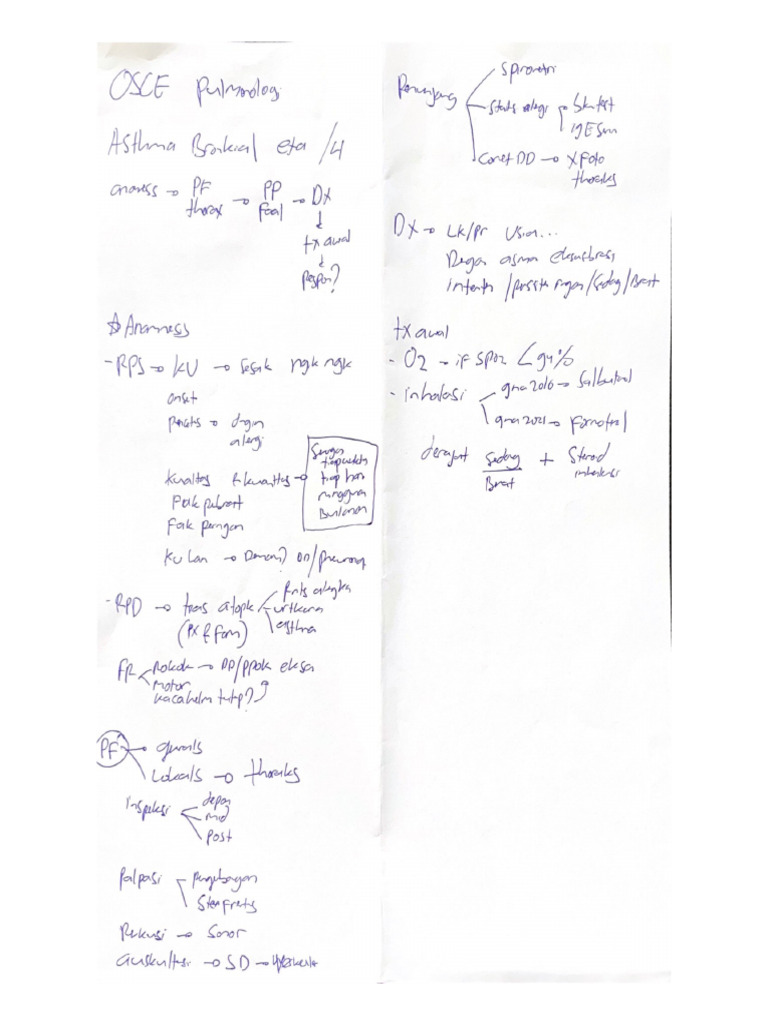 OSCE Pulmonologi
Asthma Bronkial eta /4
anamess → PF thorax → PP Faal → DX
↓
tx awal
↓
Respon?
☆ Anamness
- RPS → KU → Sesak ngk ngk
onset
dingin
alergi
kualitas & kuantitas →
Serangan
tiap hari
mingguan
Bulanan
Fak perberat
Fak peringan
KU Lan → Demam? DD/pneumo
- RPD → trias atopik
(PX & Fam)
Rnts alergika
urtikaria
asthma
FR
Rokok → DD/PPOK eksa
motor
kaca helm tutup?
PF → generalis
Lokalis → thoraks
Inspeksi
depan
mid
post
Palpasi
Pengembangan
Stem Fremitus
Perkusi → Sonor
Auskultasi → SD →
Penunjang
Spirometri
Status alergi → Skin test
IgE Serum
DD → X Foto thoraks
DX → Lk/Pr Usia...
Dengan asma eksaserbasi
intermiten /persisten ringan/Sedang/Berat
tx awal
- O2 → iF SPO2 < 94%
- inhalasi
gina 2016 → Salbutamol
gina 2021 → Formoterol
derajat Sedang
Berat
+ Steroid
inhalasi